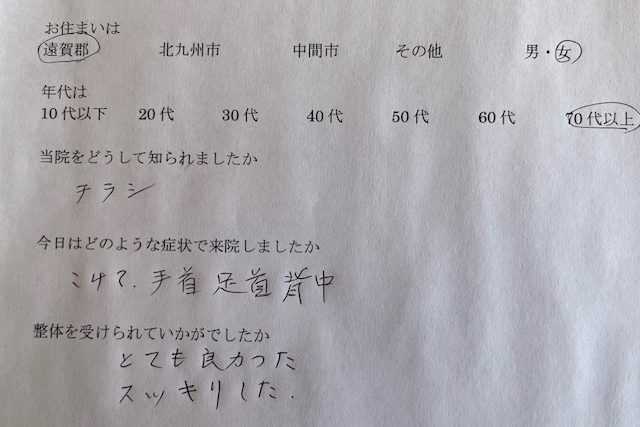 お住まいは
遠賀郡 北九州市 中間市 その他 男・女
年代は
10代以下 20代 30代 40代 50代 60代 70代以上
当院をどうして知られましたか
チラシ
今日はどのような症状で来院しましたか
こけて、手首 足首 背中
整体を受けられていかがでしたか
とても良かった
スッキリした.